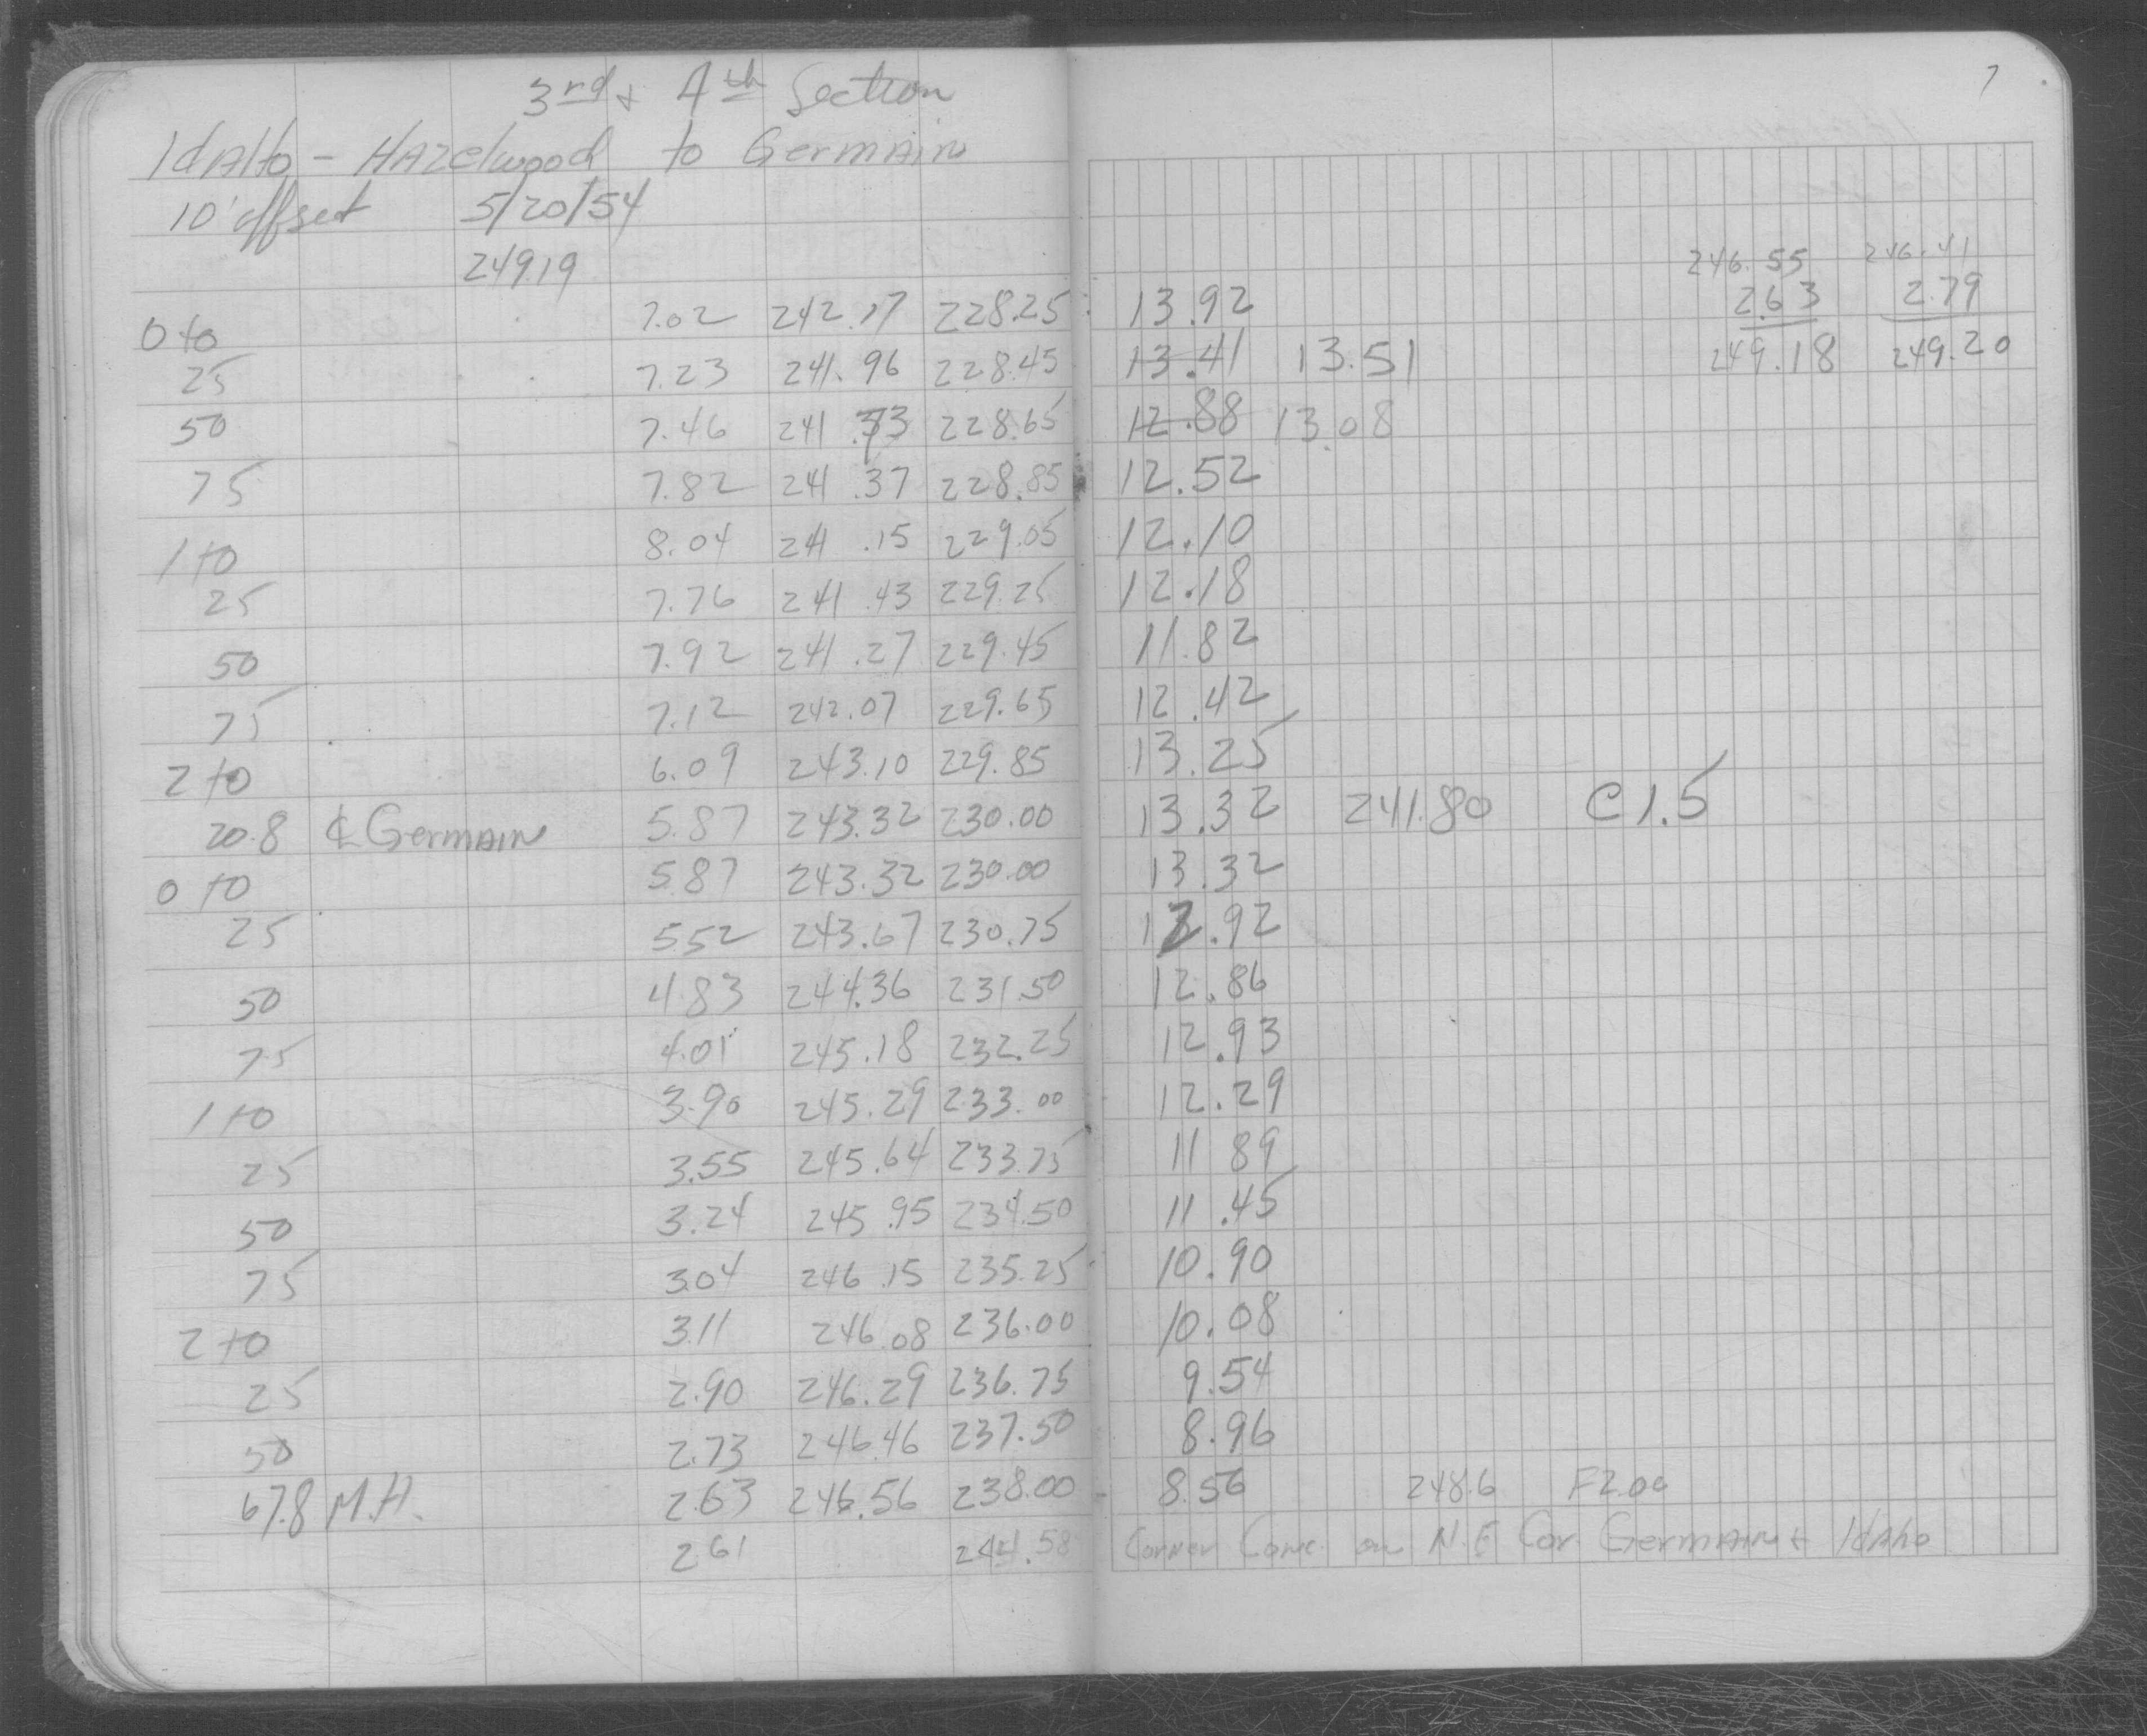 3rd + 4th Section
IdAHo - HAzelwood to GermAin
10' offset 5/20/54
249.19
246.55 246.41
2.63 2.79
249.18 249.20
7
0+0 7.02 242.17 228.25 13.92
25 7.23 241.96 228.45 13.41 13.51
50 7.46 241.73 228.65 12.88 13.08
75 7.82 241.37 228.85 12.52
1+0 8.04 241.15 229.05 12.10
25 7.76 241.43 229.25 12.18
50 7.92 241.27 229.45 11.82
75 7.12 242.07 229.65 12.42
2+0 6.09 243.10 229.85 13.25
20.8 ℄ GermAIN 5.87 243.32 230.00 13.32 241.80 C 1.5
0+0 5.87 243.32 230.00 13.32
25 5.52 243.67 230.75 12.92
50 4.83 244.36 231.50 12.86
75 4.01 245.18 232.25 12.93
1+0 3.90 245.29 233.00 12.29
25 3.55 245.64 233.75 11 89
50 3.24 245.95 234.50 11.45
75 3.04 246.15 235.25 10.90
2+0 3.11 246.08 236.00 10.08
25 2.90 246.29 236.75 9.54
50 2.73 246.46 237.50 8.96
67.8 M.H. 2.63 246.56 238.00 8.56 248.6 F2.00
2.61 244.58 Corner Conc. on N.E Cor GermAIN + IdAho